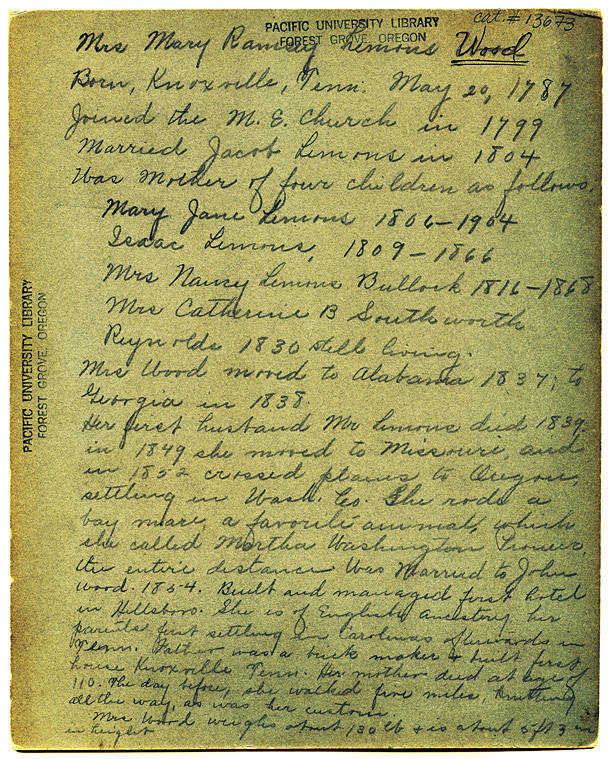 cat. # 13673
PACIFIC UNIVERSITY LIBRARY
FOREST GROVE, OREGON
Mrs Mary Ramsey Lemons Wood
Born, Knoxville, Tenn. May 20, 1787
Joined the M. E. Church in 1799
Married Jacob Lemons in 1804
Was Mother of four children as follows.
Mary Jane Lemons 1806-1904
Isaac Lemons, 1809-1866
Mrs Nancy Lemons Bullock 1816-1868
Mrs Catherine B Southworth
Reynolds 1830 still living.
Mrs Wood moved to Alabama 1837; to
Georgia in 1838.
Her first husband Mr Lemons died 1839.
in 1849 she moved to Missouri, and
in 1852 crossed plains to Oregon,
settling in Wash. Co. She rode a
bay mare, a favorite animal, which
she called Martha Washington Pioneer,
the entire distance Was Married to John
Wood. 1854. Built and managed first hotel
in Hillsboro. She is of English ancestry, her
parents first settling in Carolinas afterwards in
Tenn. Father was a brick maker & built first
house Knoxville Tenn. Her mother died at age of
110. The day before, she walked five miles, knitting
all the way, as was her custom.
Mrs Wood weighs about 130 lb & is about 5 ft 3 in
in height
PACIFIC UNIVERSITY LIBRARY
FOREST GROVE, OREGON